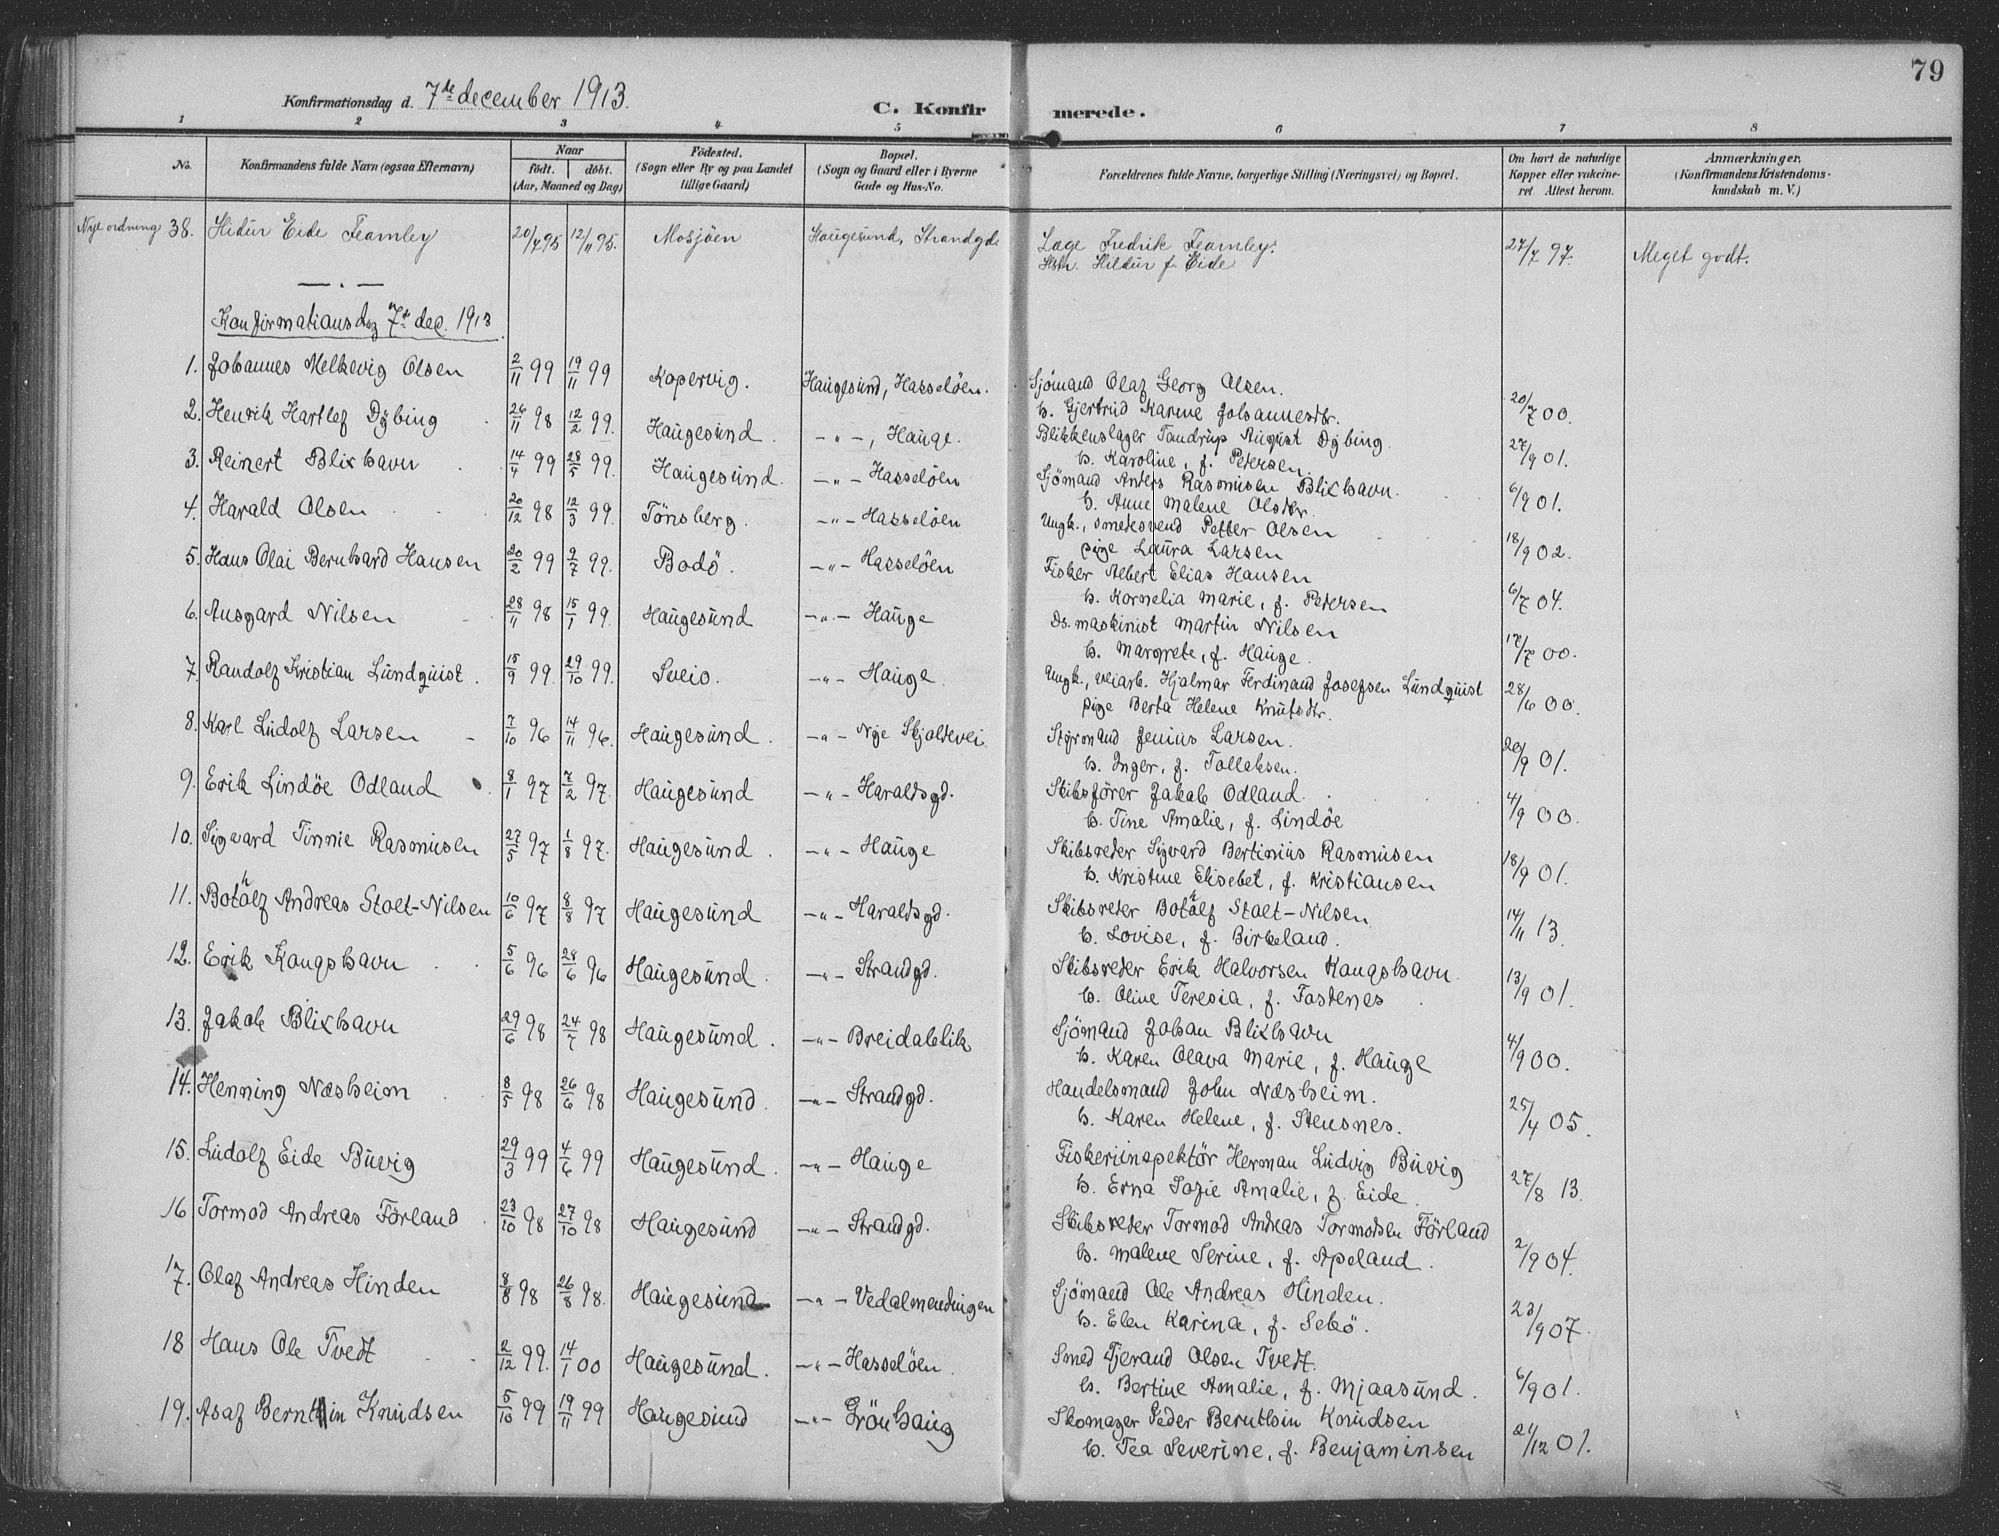 79
Konfirmationsdag d. 7de december 1913.
C. Konfirmerede.
1 2 3 4 5 6 7 8
No.
Konfirmandens fulde Navn (ogsaa Efternavn)
Naar
født. døbt.
(Aar, Maaned og Dag)
Fødested.
(Sogn eller By og paa Landet
tillige Gaard)
Bopæl.
(Sogn og Gaard eller i Byerne
Gade og Hus-No.
Forældrenes fulde Navne, borgerlige Stilling (Næringsvei) og Bopæl.
Om havt de naturlige
Kopper eller vakcine-
ret. Attest herom.
Anmærkninger.
(Konfirmandens Kristendoms-
kundskab m. V.)
Nye ordning 38. Hidur Eide Fearnley 20/7 95 12/11 95. Mosjöen Haugesund, Strandgde Lage Fredrik Fearnley. 27/7 97. Meget godt.
Hstr. Hildur f. Eide
Konfirmationsdag 7de dec. 1913.
1. Johannes Melkevig Olsen 2/11 99 19/11 99 Kopervig. Haugesund, Hasseløen. Sjømand Olaf Georg Olsen. 20/7 00.
h. Gjertrud Karine Johannesdtr.
2. Henrik Hartlef Dybing 26/11 98 12/2 99. Haugesund. -"-, Hauge. Blikkenslager Tandrup August Dybing. 27/9 01.
h. Karoline, f. Petersen.
3. Reinert Blixhavn 14/4 99 28/5 99. Haugesund. -"- Hasseløen Sjømand Anters Rasmusen Blixhavn. 6/9 01.
h. Anne Malene Olsdtr.
4. Harald Olsen 20/12 98 12/3 99. Tönsberg. -"- Hasseløen Ungk., smedsvend Petter Olsen 18/9 02.
pige Laura Larsen
5. Hans Olai Bernhard Hansen 20/2 99 9/7 99. Bodö. -"- Hasseløen Fisker Albert Elias Hansen 6/7 04.
h. Kornelia Marie, f. Petersen
6. Ansgard Nilsen 28/11 98 15/1 99. Haugesund -"- Hauge Ds. maskinist Martin Nilsen 17/7 00.
h. Margrete, f. Hauge.
7. Randolf Kristian Lundquist. 15/9 99. 29/10 99. Sveio. -"- Hauge. Ungk., veiarb. Hjalmar Ferdinand Josefsen Lundquist 28/6 00.
pige Berta Helene Knutsdtr.
8. Karl Ludolf Larsen 7/10 96 14/11 96. Haugesund. -"- Nye Skjoldevei Styrmand Jenius Larsen. 20/9 01.
h. Inger, f. Tollaksen.
9. Erik Lindöe Odland 8/1 97 7/2 97. Haugesund -"- Haraldsgd. Skibsfører Jakob Odland. 4/9 00.
h. Tine Amalie, f. Lindöe
10. Sigvard Tinnie Rasmusen 27/5 97 1/8 97. Haugesund. -"- Hauge Skibsreder Sigvard Bertinius Rasmusen 18/9 01.
h. Kristine Elisebet, f. Kristiansen
11. Botolf Andreas Stolt-Nilsen 10/6 97 8/8 97 Haugesund -"- Haraldsgd. Skibsreder Botolf Stolt-Nilsen 14/11 13.
h. Lovise, f. Birkeland.
12. Erik Kongshavn 5/6 96 28/6 96 Haugesund. -"- Strandgd. Skibsreder Erik Halvorsen Kongshavn. 13/9 01.
h. Oline Teresia, f. Fostenes
13. Jakob Blixhavn 29/6 98 24/7 98 Haugesund. -"- Breidablik Sjømand Johan Blixhavn 4/9 00.
h. Karen Olava Marie, f. Hauge
14. Henning Næsheim 8/5 98 26/6 98 Haugesund. -"- Strandgd. Handelsmand John Næsheim. 25/4 05.
h. Karen Helene, f. Stensnes.
15. Ludolf Eide Buvig 29/3 99 4/6 99 Haugesund. -"- Hauge Fiskeriinspektör Herman Ludvig Buvig 27/8 13.
h. Erna Sofie Amalie, f. Eide.
16 Tormod Andreas Förland 23/10 98 27/10 98 Haugesund -"- Strandgd. Skibsreder Tormod Andreas Tormodsen Förland 2/9 04.
h. Malene Serine, f. Apeland.
17. Olaf Andreas Hinden 8/8 98 26/8 98. Haugesund -"- Vedalmendingen Sjømand Ole Andreas Hinden. 23/9 07.
h. Elen Karina, f. Sebö.
18 Hans Ole Tvedt 2/12 99. 14/1 00 Haugesund. -"- Hasseløen. Smed Tjerand Olsen Tvedt. 6/9 01.
h. Bertine Amalie, f. Mjaasund.
19. Asaf Bernthin Knudsen 5/10 99 19/11 99 Haugesund -"- Grönhaug Skomager Peder Bernthin Knudsen 21/12 01.
h. Tea Severine, f. Benjaminsen